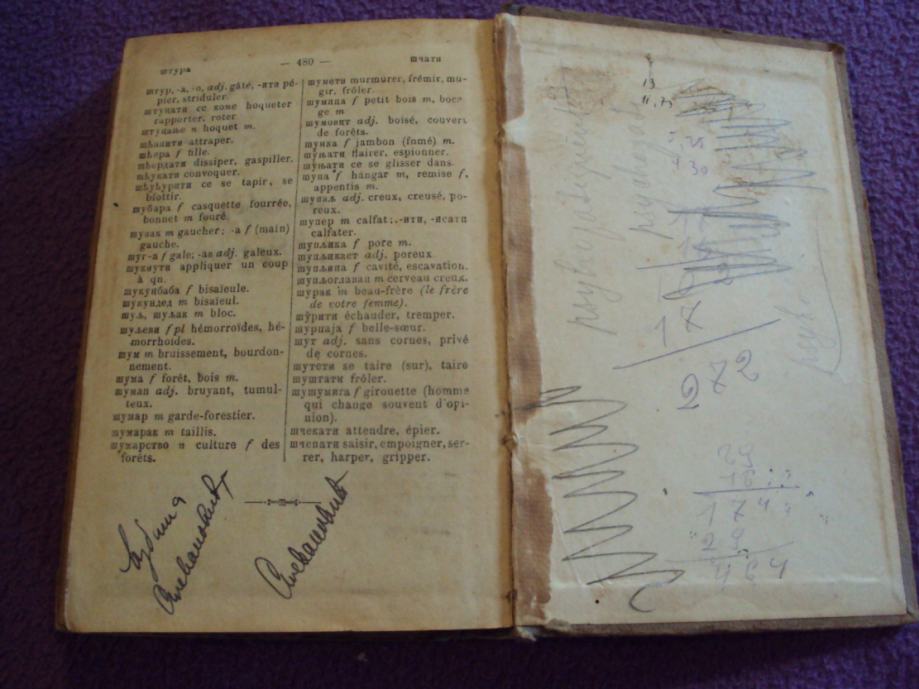 штура
— 480 —
шчапи
штур, -а, -о, adj. gâté, -ити pé-
pier, striduler.
штуцати се коме hoqueter
rapporter, roter
штуцање n hoquet m.
шћапити attraper.
шћера f fille.
шћердати dissiper, gaspiller.
шћукати convoquer.
шћућурити се se tapir, se
blottir.
шубара f casquette fourrée,
bonnet m fouré.
шувак m gaucher; -а f (main)
gauche.
шуг-а f gale; -ав adj. galeux.
шукнути appliquer un coup
à qn.
шукунбаба f bisaïeule.
шукундед m bisaïeul.
шуљ, шуљак m bloc.
шуљеви f pl hémorroïdes, hé-
morrhoïdes.
шум m bruissement, bourdon-
nement.
шума f forêt, bois m.
шуман adj. bruyant, tumul-
teux.
шумар m garde-forestier.
шумарак m taillis.
шумарство n culture f des
forêts.
шумети murmurer, frémir, mu-
gir, frôler.
шумица f petit bois m, boca-
ge m
шумовит adj. boisé, couvert
de forêts.
шунка f jambon (fumé) m.
шуњати flairer, espionner.
шуњати се se glisser dans.
шупа f hangar m, remise f,
appentis m.
шупаљ adj. creux, creusé, po-
reux.
шупер m calfat; -ити, -исати
calfater.
шупљика f pore m.
шупљикаст adj. poreux.
шупљина f cavité, escavation.
шупљоглавац m cerveau creux.
шурак m beau-frère (le frère
de votre femme).
шурити échauder, tremper.
шурнаја f belle-sœur.
шут adj. sans cornes, privé
de cornes.
шутети se taire (sur), taire
шуштати frôler.
шушумига f girouette (homme
qui change souvent d'opi-
nion).
шчекати attendre, épier.
шчепати saisir, empoigner, ser-
rer, harper, gripper.
13
11,75
17
17
272
29
16
174
29
464